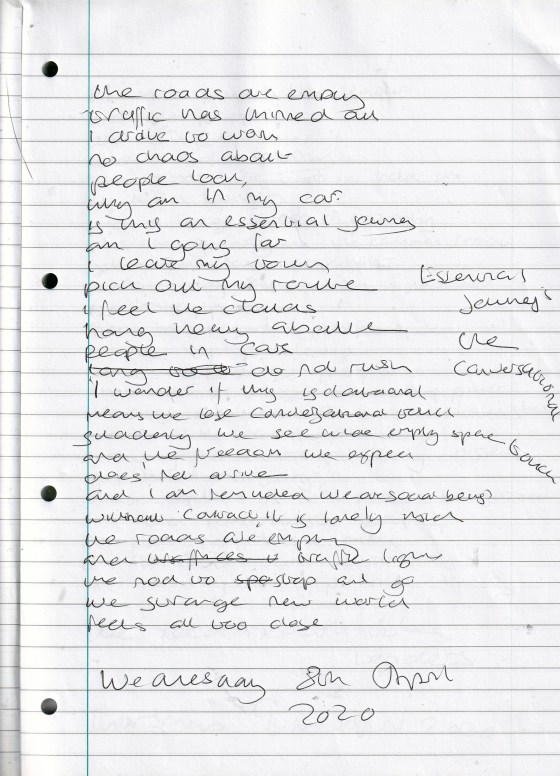 the roads are empty
traffic has thinned out
I drive to work
no chaos about
people look,
why am in my car.
is this an essential journey
am I going far
I leave my town
pick out my route
I feel the clouds
hang heavy above
people in cars
do not rush
I wonder if this isolational
means we lose conversational touch
suddenly we see wide empty space
and the freedom we expect
does not arrive
and I am reminded we are social beings
without contact it is lonely
the roads are empty
and traffic lights
we nod to stop and go
the strange new world
feels all too close
Essential
Journeys
the
Conversational
touch
Wednesday 8th April
2020